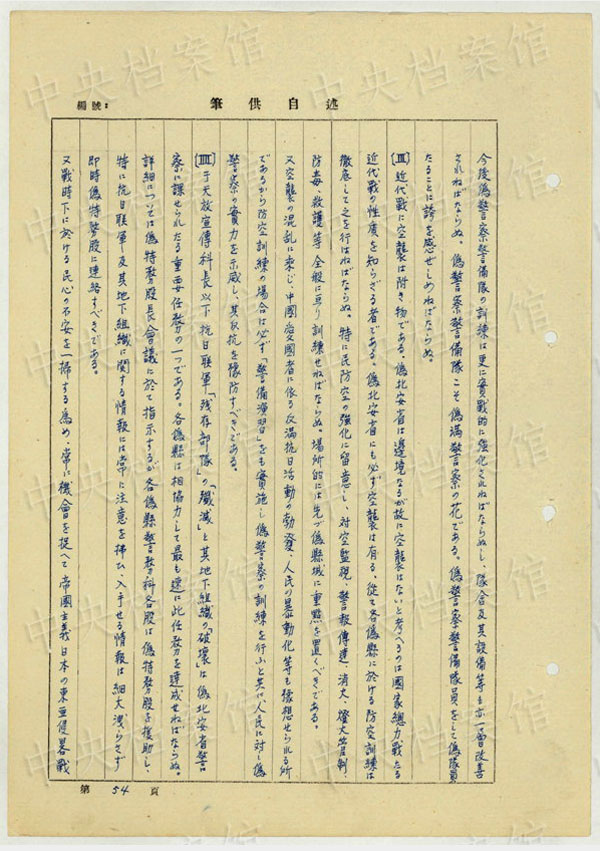 編號：
述自供筆
今後偽警察警備隊の訓練は更に実戦的に強化されねばならぬし、隊舎及其設備等も亦一層改善
されねばならぬ。偽警察警備隊こそ偽満警察の花である。偽警察警備隊員をして偽隊員
たることに誇を感ぜしめねばならぬ。
〔Ⅱ〕近代戦に空襲は附き物である。偽北安省は邊境なるが故に空襲はないと考へるのは國家總力戦たる
近代戦の性質を知らざる者である。偽北安省にも必ず空襲は有る、從て各偽縣に於ける防空訓練は
徹底して之を行はねばならぬ。特に民防空の強化に留意し、対空監視、警報傳達、消火、燈火管制、
防毒、救護等全般に亘り訓練せねばならぬ。場所的には先づ偽縣城に重點を置くべきである。
又空襲の混乱に乗じ、中國愛國者に依る反満抗日活動の勃発、人民の暴動化等も豫想せられる所
であるから防空訓練の場合は必ず「警備演習」をも實施し偽警察の訓練を行ふと共に人民に対し偽
警察の實力を示威し、其反抗を豫防すべきである。
〔Ⅲ〕于天放宣傳科長以下抗日联軍「残存部隊」の「殲滅」と其地下組織の「破壊」は偽北安省警
察に課せられたる重要任務の一つである。各偽縣は相協力して最も速に此任務を達成せねばならぬ。
詳細については偽特務股長会議に於て指示するが各偽縣警務科各股は偽特務股を援助し、
特に抗日联軍及其地下組織に関する情報には常に注意を拂ひ、入手せる情報は細大洩らさず
即時偽特務股に連絡すべきである。
又戦時下に於ける民心の不安を一掃する為め、常に機會を捉へて帝國主義日本の東亜侵畧戦
第 54 頁
中央档案馆